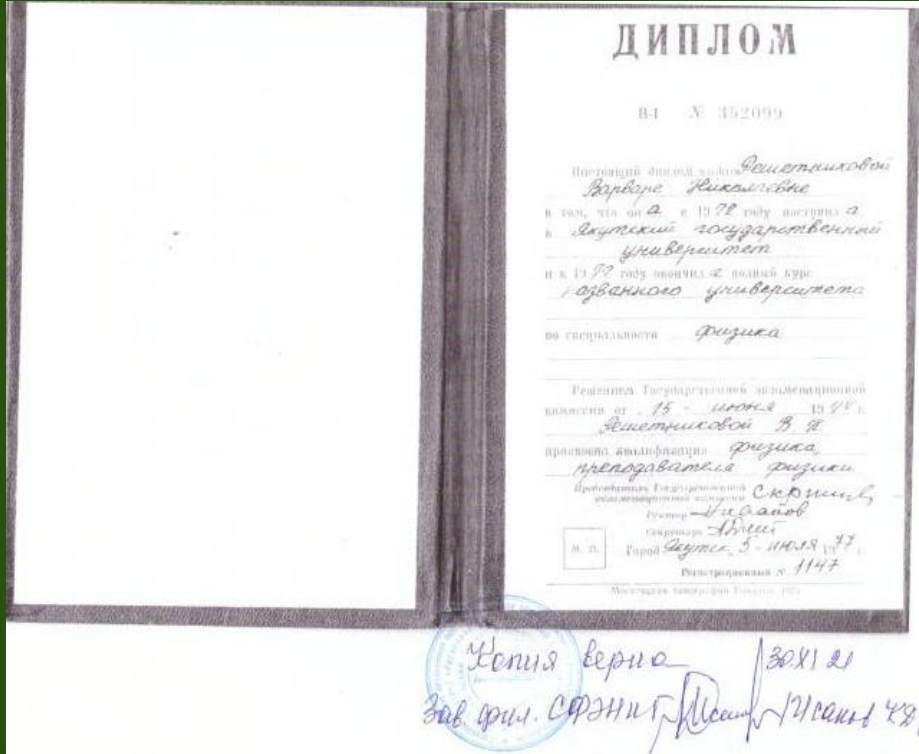 ДИПЛОМ
В-I № 352099
Настоящий диплом выдан Решетниковой
Варваре Николаевне
в том, что он а в 1972 году поступил а
в Якутский государственный
университет
и в 1977 году окончил а полный курс
названного университета
по специальности физика
Решением Государственной экзаменационной
комиссии от 15 - июня 19 г.
Решетниковой В.
присвоена квалификация физика,
преподавателя физики
Председатель Государственной
экзаменационной комиссии
Ректор
Секретарь
М. П.
Город Якутск, 5 - июля 1977 г.
Регистрационный № 1147
Московская типография Гознака.
Копия верна 30 XI 21
Зав. фил.